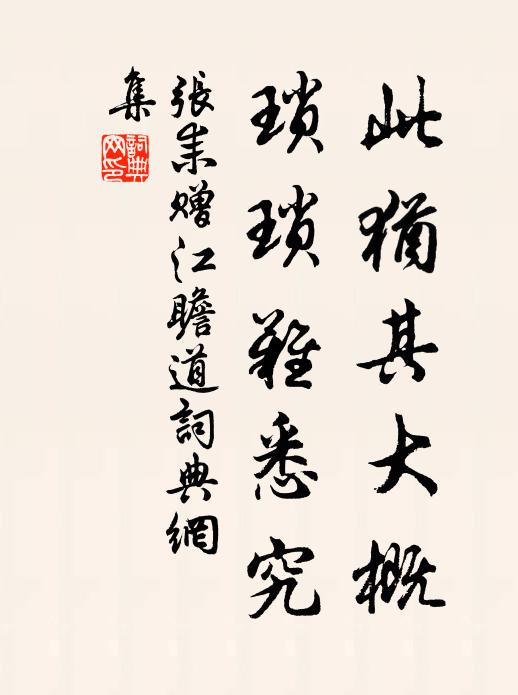 此猶其大概
瑣瑣難悉究
張耒贈江瞻道詞典網
集
詞典
网印